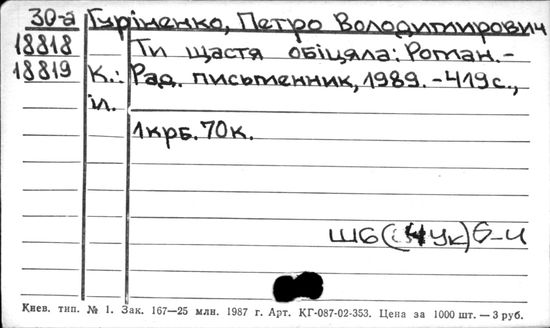 30-а Гуріненко, Петро Володимирович
18818 Ти щастя обіцяла: Роман.-
18819 К.: Рад. письменник, 1989. -419с.,
іл.
1крб. 70к.
Ш6( Ук)6-4
Киев. тип. № 1. Зак. 167—25 млн. 1987 г. Арт. КГ-087-02-353. Цена за 1000 шт. — 3 руб.